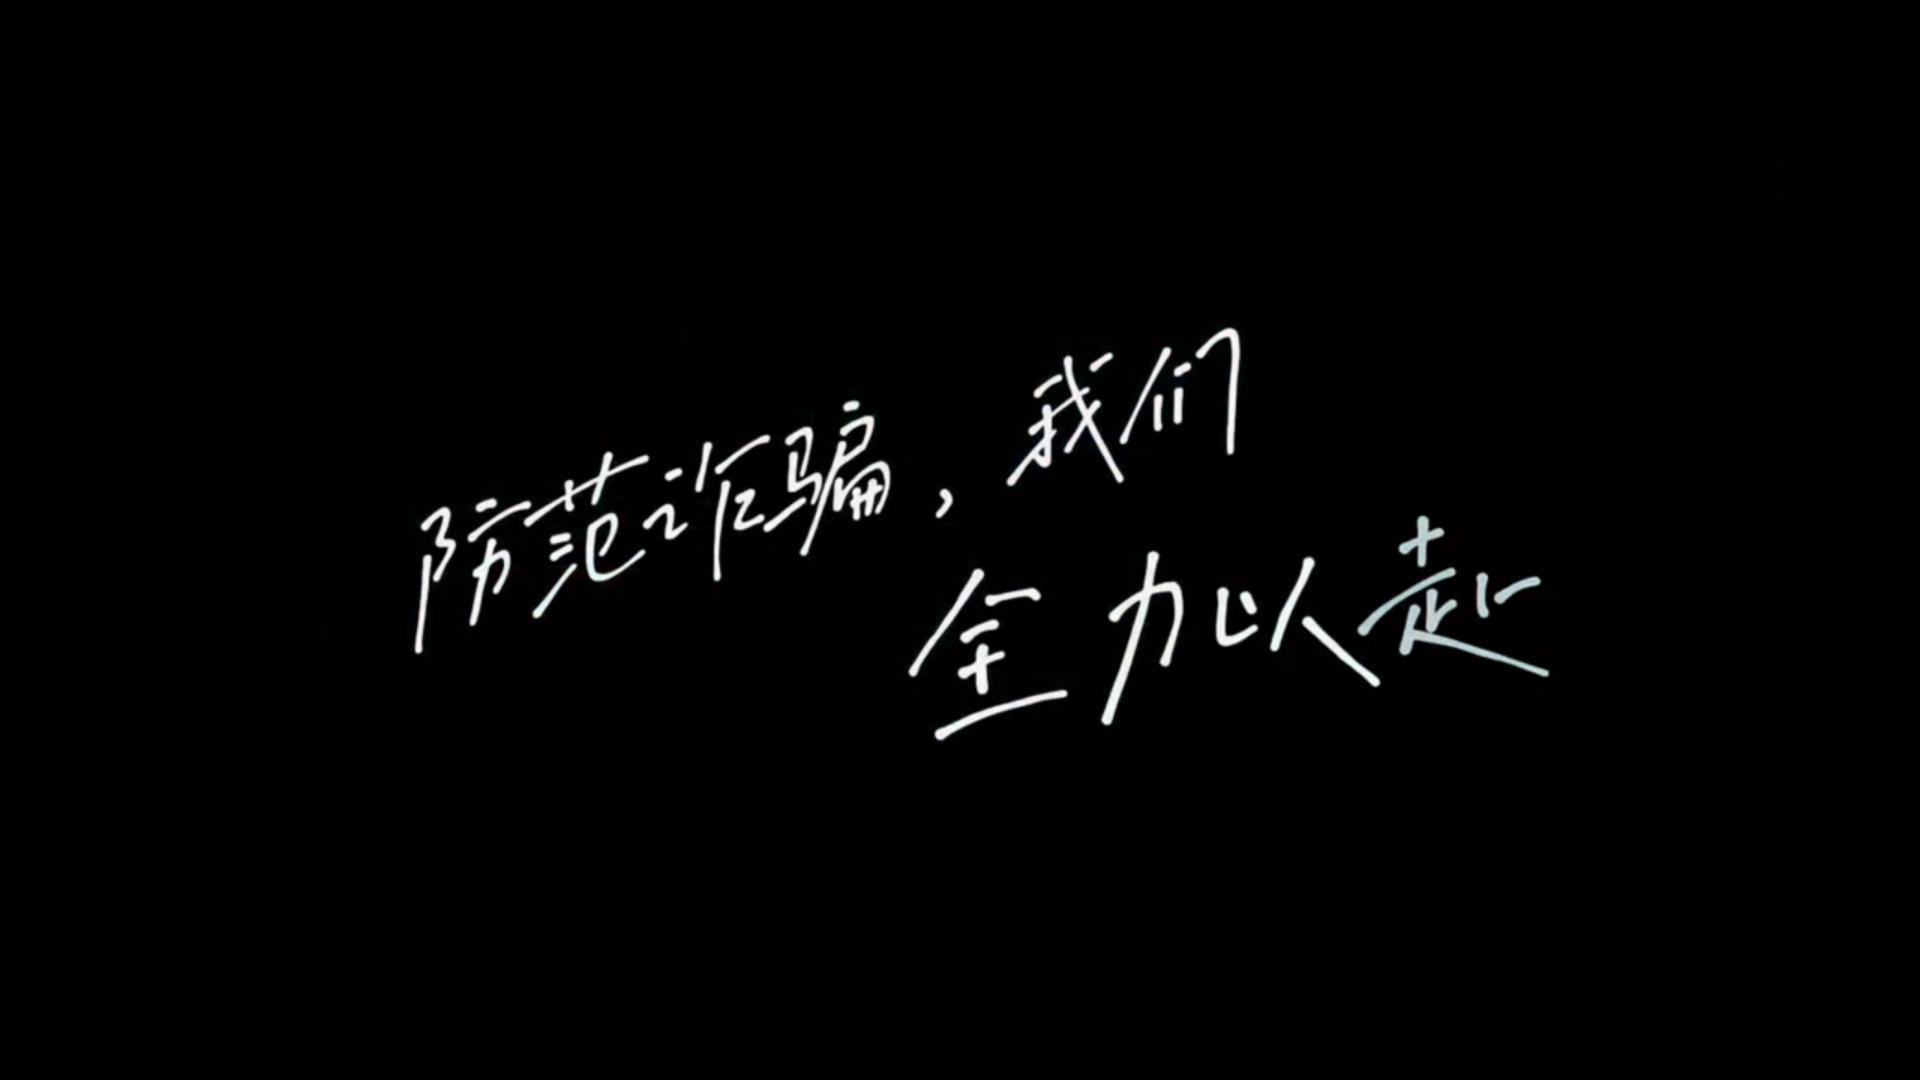 防范诈骗，我们
全力以赴